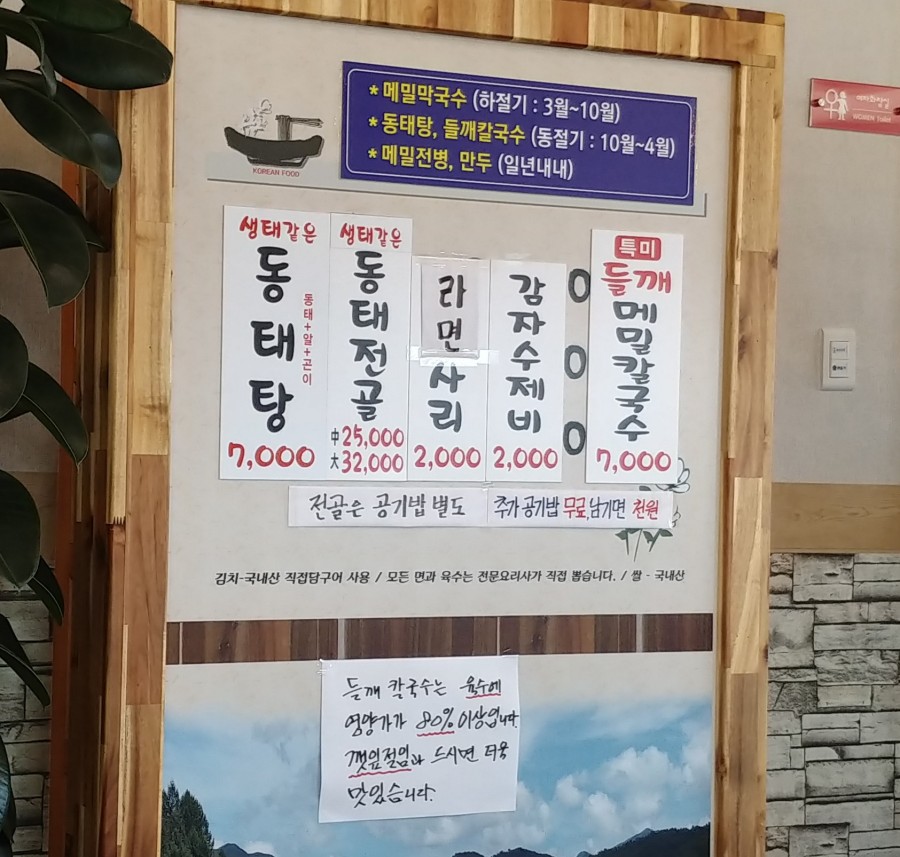 *메밀막국수 (하절기 : 3월~10월)
*동태탕, 들깨칼국수 (동절기 : 10월~4월)
*메밀전병, 만두 (일년내내)
KOREAN FOOD
여자화장실
WOMEN Toilet
생태같은
동태탕
동태+알+곤이
7,000
생태같은
동태전골
中25,000
大32,000
라면사리
2,000
감자수제비
2,000
000
특미
들깨
메밀칼국수
7,000
전골은 공기밥 별도
추가공기밥 무료, 남기면 천원
김치-국내산 직접담구어 사용 / 모든 면과 육수는 전문요리사가 직접 뽑습니다. / 쌀 - 국내산
들깨 칼국수는 육수에
영양가가 80%이상입니다
깻잎절임과 드시면 더욱
맛있습니다.